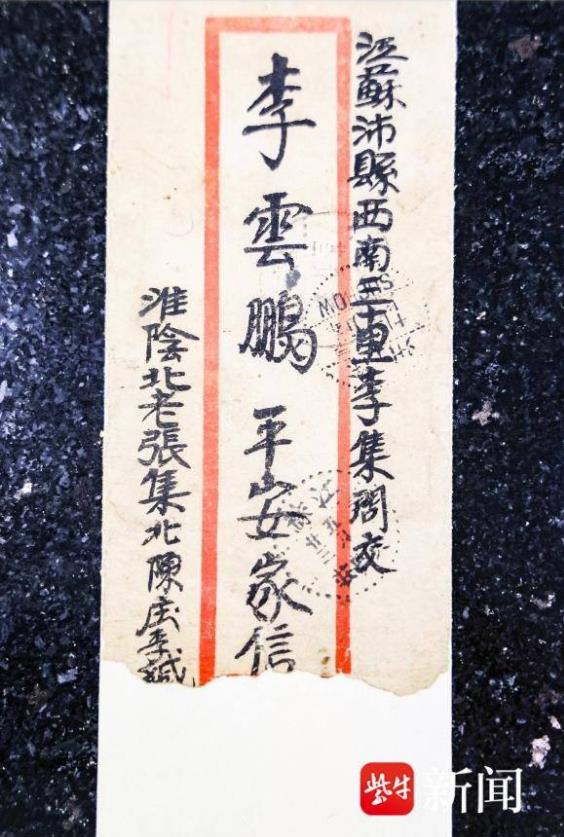 江蘇沛縣西南三十里李集問交
李雲鵬 平安家信
淮陰北老張集北陳庄李緘
紫牛新闻